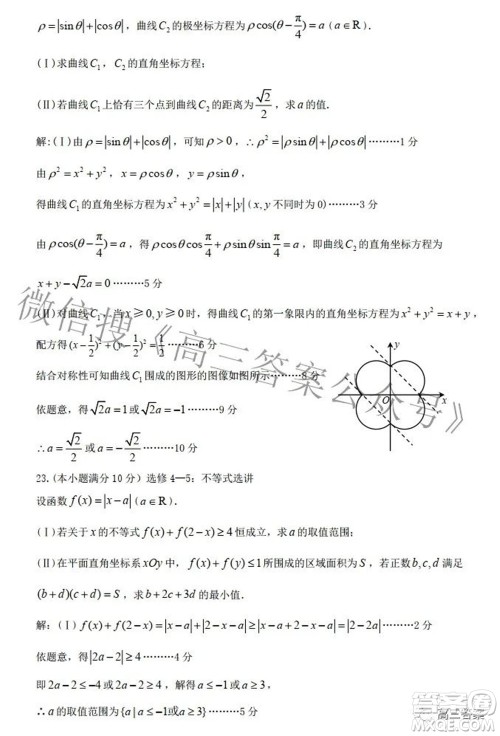 ρ=|sinθ|+|cosθ|，曲线C₂的极坐标方程为ρcos(θ-π/4)=a（a∈R）.
(Ⅰ)求曲线C₁，C₂的直角坐标方程；
(Ⅱ)若曲线C₁上恰有三个点到曲线C₂的距离为√2/2，求a的值.
解:(Ⅰ)由ρ=|sinθ|+|cosθ|，可知ρ>0，∴ρ²=|ρsinθ|+|ρcosθ|………1分
由ρ²=x²+y²，x=ρcosθ，y=ρsinθ，
得曲线C₁的直角坐标方程为x²+y²=|x|+|y|(x,y不同时为0)………3分
由ρcos(θ-π/4)=a，得ρcosθcosπ/4+ρsinθsinπ/4=a，即曲线C₂的直角坐标方程为
x+y-√2a=0………5分
(Ⅱ)对曲线C₁，当x≥0,y≥0时，得曲线C₁的第一象限内的直角坐标方程为x²+y²=x+y，
配方得(x-1/2)²+(y-1/2)²=1/2………6分
结合对称性可知曲线C₁围成的图形的图像如图所示………8分
依题意，得√2a=1或√2a=-1………9分
∴a=√2/2或a=-√2/2………10分
y
O
x
23.(本小题满分10分）选修4—5：不等式选讲
设函数f(x)=|x-a|（a∈R）.
(Ⅰ)若关于x的不等式f(x)+f(2-x)≥4恒成立，求a的取值范围；
(Ⅱ)在平面直角坐标系xOy中，f(x)+f(y)≤1所围成的区域面积为S，若正数b,c,d满足
(b+d)(c+d)=S，求b+2c+3d的最小值.
解：(Ⅰ)f(x)+f(2-x)=|x-a|+|2-x-a|≥|x-a+2-x-a|=|2-2a|………2分
依题意，得|2a-2|≥4………3分
即2a-2≤-4或2a-2≥4，解得a≤-1或a≥3，
∴a的取值范围为{a|a≤-1或a≥3}………5分
微信搜《高三答案公众号》
高三答案